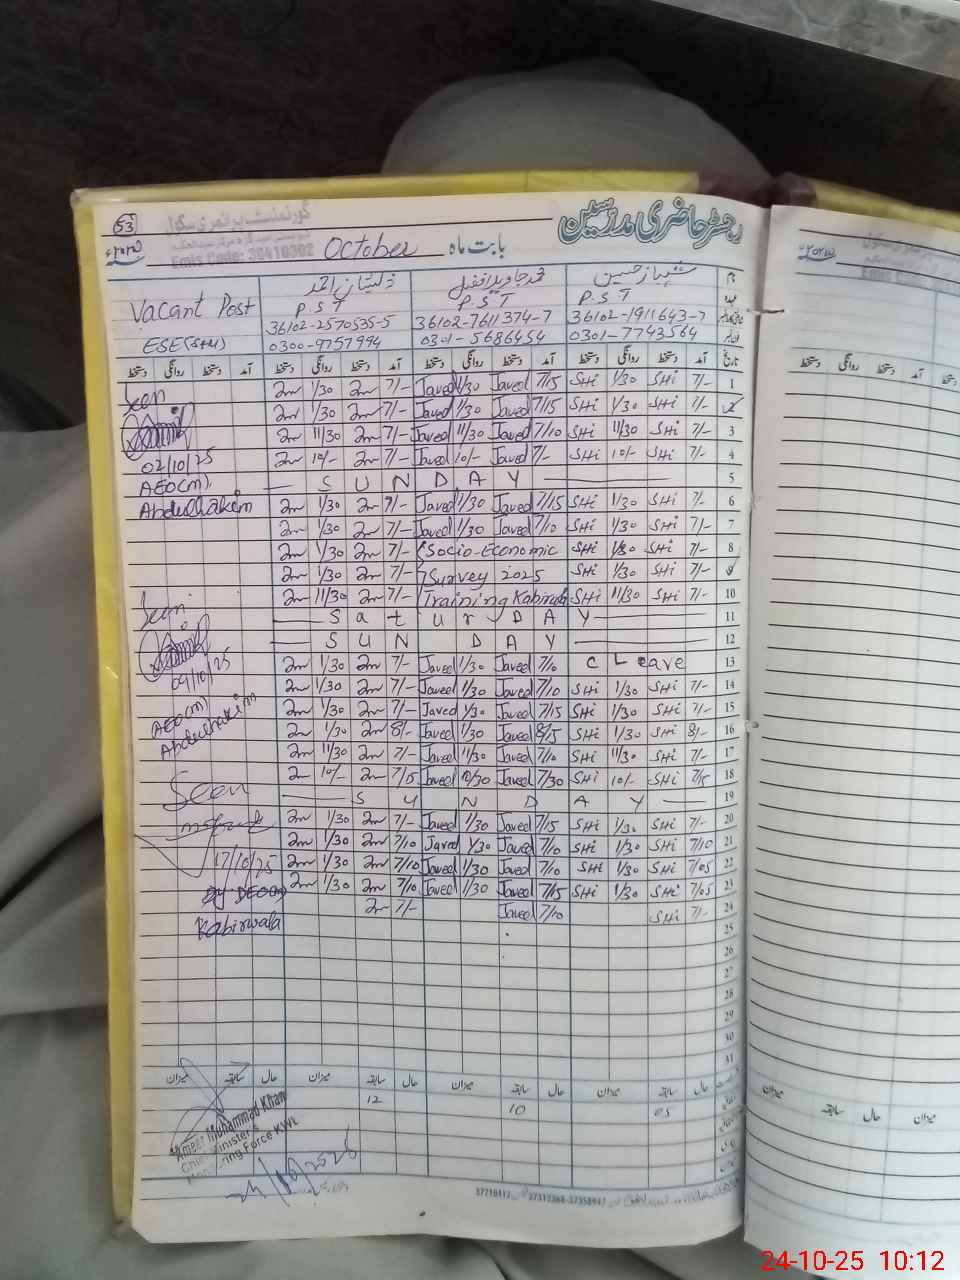 53
گورنمنٹ پرائمری سکول
Emis Code: 36410302
رجسٹر حاضری مدرسین
بابت ماہ October
نام شہباز حسین محمد جاوید افضل
P.S.T P.S.T P.S.T Vacant Post
36102-1911643-7 36102-7611374-7 36102-2570535-5
0301-7743564 0301-5686454 0300-9757994 ESE(S+M)
تاریخ آمد دستخط روانگی دستخط آمد دستخط روانگی دستخط آمد دستخط روانگی دستخط آمد دستخط روانگی دستخط
Seen 1/30 7/- Javed 1/30 Javed 7/15 SHi 1/30 SHi 7/- 1
1/30 7/- Javed 1/30 Javed 7/15 SHi 1/30 SHi 7/- 2
11/30 7/- Javed 11/30 Javed 7/10 SHi 11/30 SHi 7/- 3
02/10/25 10/- 7/- Javed 10/- Javed 7/- SHi 10/- SHi 7/- 4
AEO(M) S U N D A Y 5
Abdulhakim 1/30 7/- Javed 1/30 Javed 7/15 SHi 1/30 SHi 7/- 6
1/30 7/- Javed 1/30 Javed 7/10 SHi 1/30 SHi 7/- 7
1/30 7/- Socio-Economic SHi 1/30 SHi 7/- 8
1/30 7/- Survey 2025 SHi 1/30 SHi 7/- 9
11/30 7/- Training Kabirwala SHi 11/30 SHi 7/- 10
Seen S a t u r D A Y 11
S U N D A Y 12
09/10/25 1/30 7/- Javed 1/30 Javed 7/10 C Leave 13
1/30 7/- Javed 1/30 Javed 7/10 SHi 1/30 SHi 7/- 14
AEO(M) 1/30 7/- Javed 1/30 Javed 7/15 SHi 1/30 SHi 7/- 15
Abdulhakim 1/30 8/- Javed 1/30 Javed 8/15 SHi 1/30 SHi 8/- 16
11/30 7/- Javed 11/30 Javed 7/10 SHi 11/30 SHi 7/- 17
Seen 10/- 7/15 Javed Javed 7/30 SHi 10/- SHi 7/15 18
S U N D A Y 19
1/30 7/- Javed 1/30 Javed 7/15 SHi 1/30 SHi 7/- 20
1/30 7/10 Javed 1/30 Javed 7/10 SHi 1/30 SHi 7/10 21
17/10/25 1/30 7/10 Javed 1/30 Javed 7/10 SHi 1/30 SHi 7/05 22
Dy DEO 1/30 7/10 Javed 1/30 Javed 7/15 SHi 1/30 SHi 7/05 23
Kabirwala 7/- Javed 7/10 SHi 7/- 24
25
26
27
28
29
30
31
حال سابقہ میزان حال سابقہ میزان حال سابقہ میزان حال سابقہ میزان
12 10 05
Ameer Muhammad Khan
Chief Minister's
Monitoring Force KWL
دستخط روانگی دستخط آمد
میزان سابقہ حال میزان
24-10-25 10:12